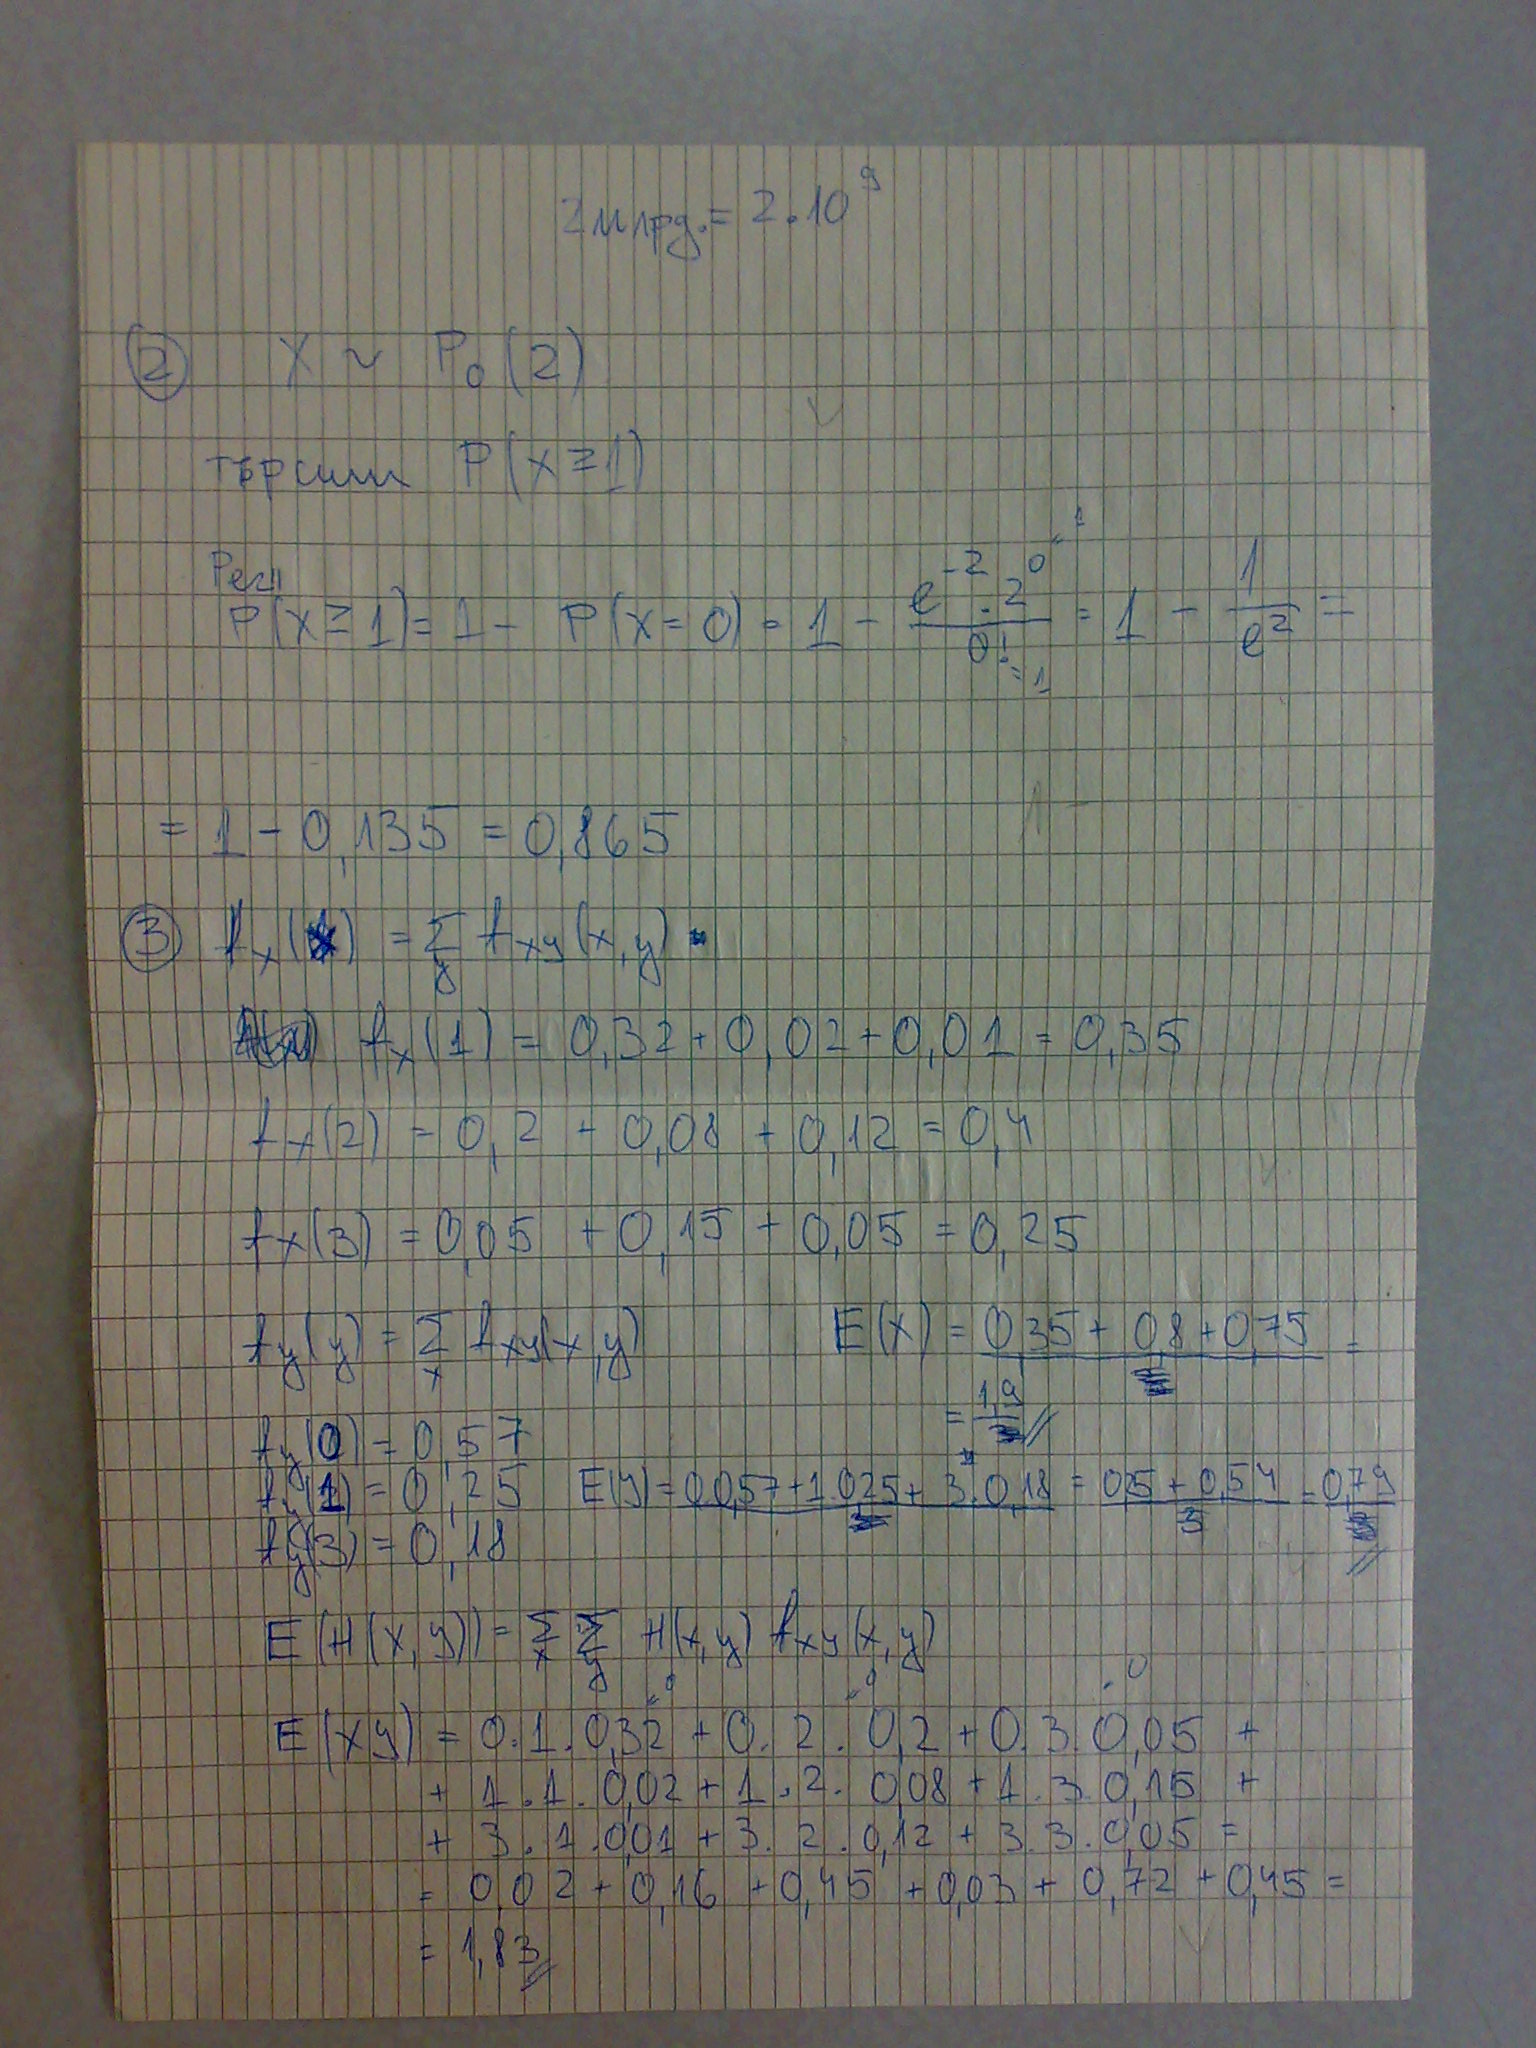 2 млрд. = 2.10^9
② X ~ Po(2)
търсим P(X ≥ 1)
Реш
P(X ≥ 1) = 1 - P(X = 0) = 1 - (e^-2 . 2^0 "1) / (0! =1) = 1 - 1/e^2 =
= 1 - 0,135 = 0,865
③ fx(x) = Σy fxy(x,y)
fx(1) = 0,32 + 0,02 + 0,01 = 0,35
fx(2) = 0,2 + 0,08 + 0,12 = 0,4
fx(3) = 0,05 + 0,15 + 0,05 = 0,25
fy(y) = Σx fxy(x,y) E(X) = 0,35 + 0,8 + 0,75 =
= 1,9 //
fy(0) = 0,57
fy(1) = 0,25 E(y) = 0.0,57 + 1.0,25 + 3.0,18 = 0,25 + 0,54 / 3 = 0,79 //
fy(3) = 0,18
E(H(x,y)) = Σx Σy H(x,y) fxy(x,y)
E(xy) = 0.1.0,32 "0 + 0.2.0,2 "0 + 0.3.0,05 "0 +
+ 1.1.0,02 + 1.2.0,08 + 1.3.0,15 +
+ 3.1.0,01 + 3.2.0,12 + 3.3.0,05 =
= 0,02 + 0,16 + 0,45 + 0,03 + 0,72 + 0,45 =
= 1,83 //